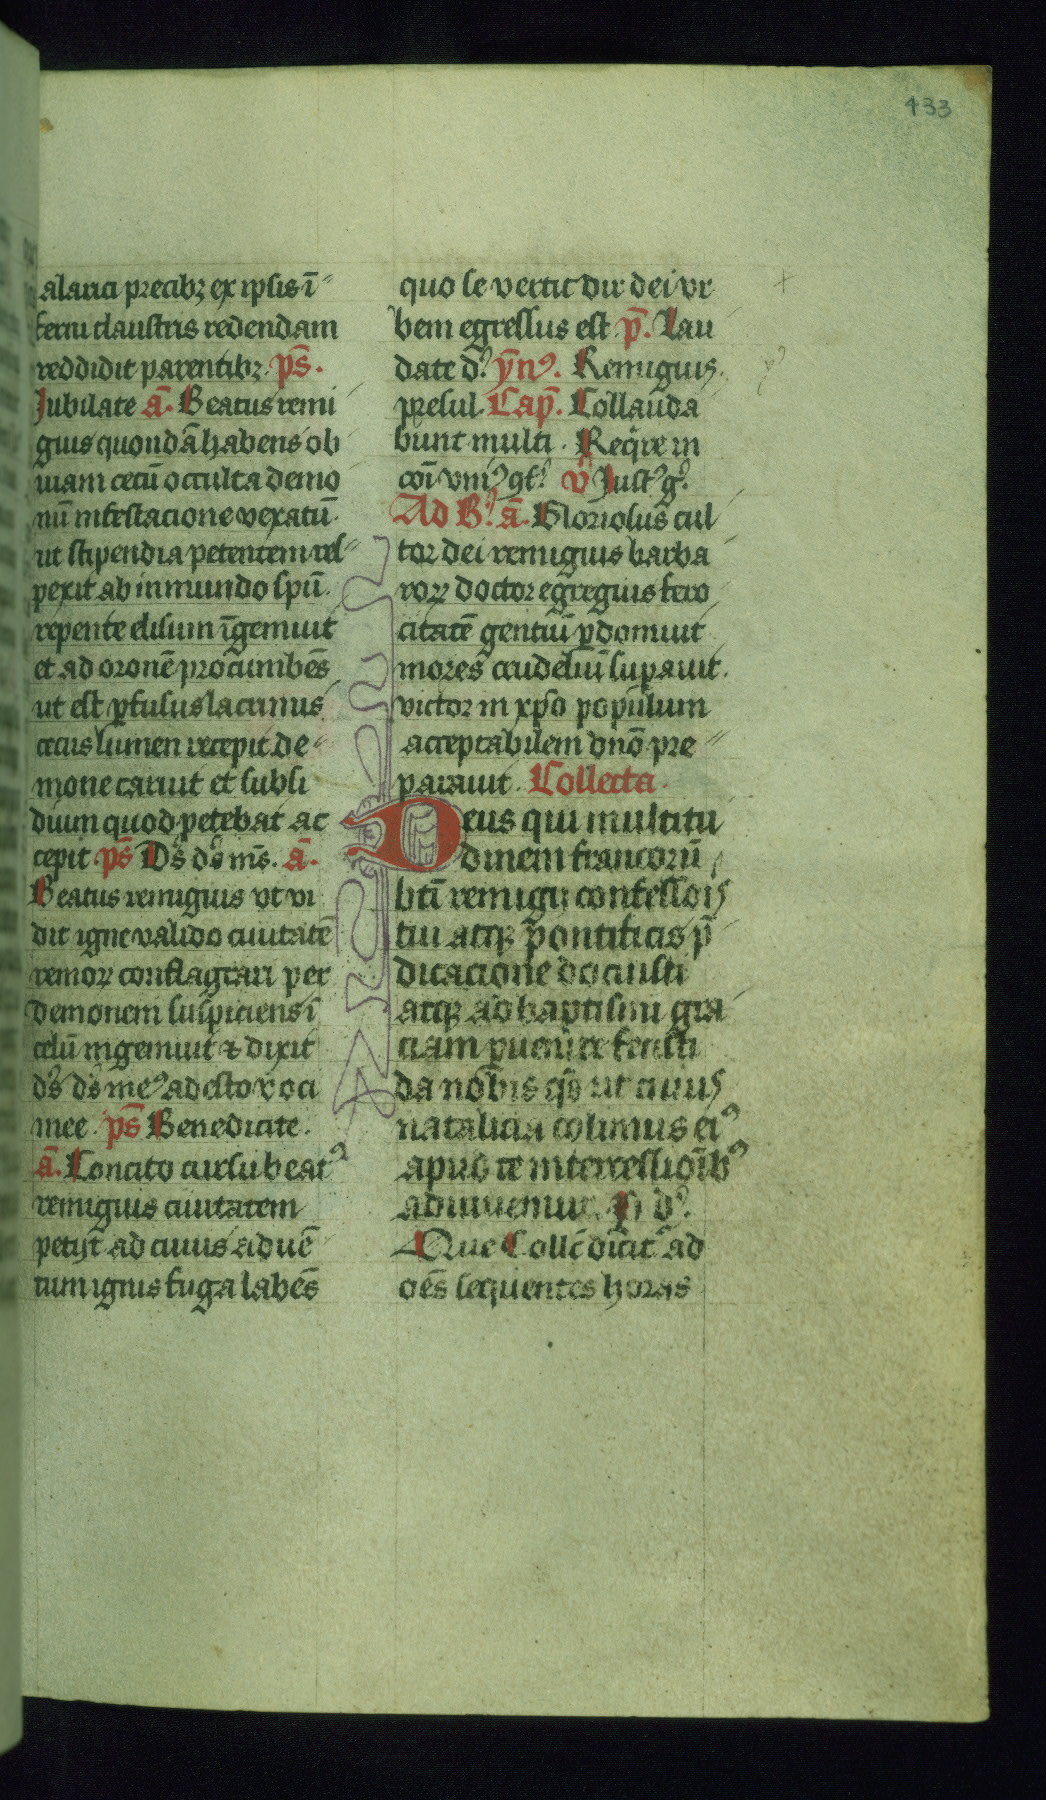 433
alarici precibꝫ ex ipsis ī
ferni claustris redendam
reddidit parentibꝫ. p̄s.
Jubilate ā. Beatus remi
gius quondā habens ob
uiam cecū occulta demo
nū infestacione vexatū.
ut stipendia petentem res
pexit ab inmundo spū.
repente elisum īgemuit
et ad oronē procumbēs
ut est ꝑfusus lacrimis
cecus lumen recepit de
mone caruit et subsi
dium quod petebat ac
cepit p̄s Ds̄ ds̄ ms̄. ā.
Beatus remigius vt vi
dit igne valido ciuitatē
remoꝝ conflagrari per
demonem suspiciens ī
celū ingemuit ⁊ dixit
ds̄ ds̄ meꝰ adesto voci
mee. p̄s Benedicite.
ā. Concito cursu beatꝰ
remigius ciuitatem
petijt ad cuius aduē
tum ignis fuga labēs
quo se vertit dux dei vr
bem egressus est p̄. Lau
date dꝰ. ȳnꝰ. Remigius
presul. Cap̄. Collauda
bunt multi. Reqͥre in
coī vniꝰ ꝯfꝰ. v̊ Justꝰ gͤ.
Ad Bꝰ. ā. Gloriosus cul
tor dei remigius barba
roꝝ doctor egregius fero
citatē gentiū ꝑdomuit
mores crudeliū suꝑauit.
victor in xp̄o populum
acceptabilem dnō pre
parauit. Collecta.
Deus qui multitu
dinem francorū
btī remigij confessoris
tui atqꝫ pontificis p̄
dicacione docuisti
atqꝫ ad baptismi gra
ciam ꝑuenire fecisti
da nobis qs̄ ut cuius
natalicia colimus eiꝰ
apud te intercessioībꝰ
adiuuemur. P dꝰ.
Que Collc̄ dicit̄ ad
oēs sequentes horas